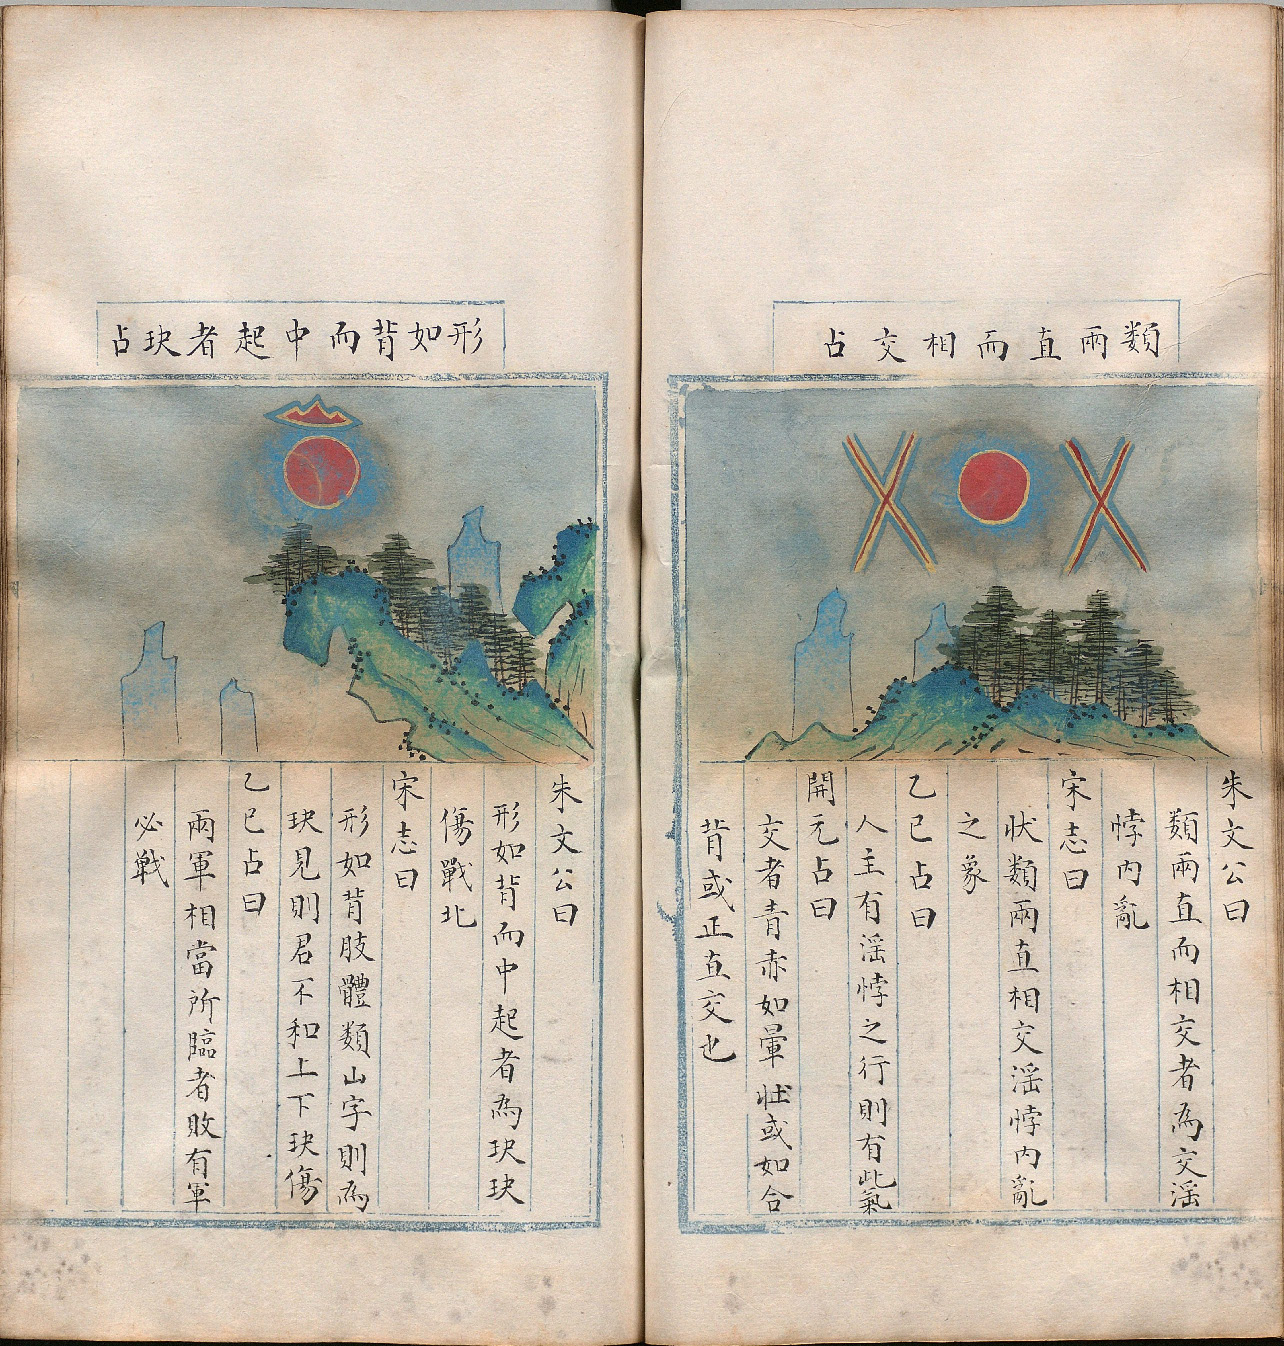 類兩直而相交占
朱文公曰
類兩直而相交者為交淫
悖內亂
宋志曰
狀類兩直相交淫悖內亂
之象
乙巳占曰
人主有淫悖之行則有此氣
開元占曰
交者青赤如暈狀或如合
背或正直交也
形如背而中起者玦占
朱文公曰
形如背而中起者為玦玦
傷戰北
宋志曰
形如背肢體類山字則為
玦見則君不和上下玦傷
乙巳占曰
兩軍相當所臨者敗有軍
必戰